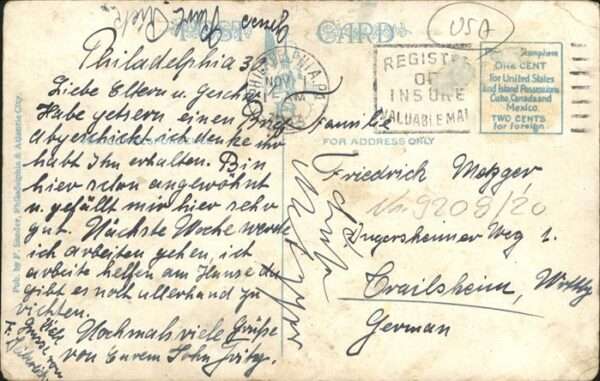 POST CARD
USA
Philadelphia 30
Liebe Eltern u. Geschw.
Habe gestern einen Brief
abgeschickt ich denke ihr
habt Ihn erhalten. Bin
hier schon angewöhnt
u. gefällt mir hier sehr
gut. Nächste Woche werde
ich arbeiten gehen, ich
arbeite helfen am Hause da
gibt es noch allerhand zu
richten.
Nochmals viele Grüße
von Eurem Sohn Fritz.
PHILADELPHIA, PA.
NOV 1
REGISTER
OR
INSURE
VALUABLE MAIL
ONE CENT
for United States
and Island Possessions
Cuba, Canada and
Mexico.
TWO CENTS
for Foreign.
FOR ADDRESS ONLY
Familie
Friedrich Metzger
9208/20
Ingersheimer Weg 1.
Crailsheim, Wttbg
German
Pub. by P. Sander, Philadelphia & Atlantic City.